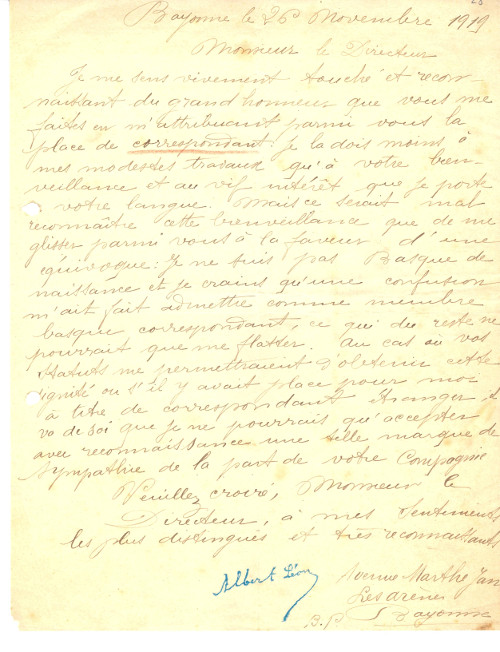 Bayonne le 26 Novembre 1919
Monsieur le Directeur
Je me sens vivement touché et recon-
naissant du grand honneur que vous me
faites en m'attribuant parmi vous la
place de correspondant: je la dois moins à
mes modestes travaux qu'à votre bien-
veillance et au vif intérêt que je porte
à votre langue. Mais ce serait mal
reconnaître cette bienveillance que de me
glisser parmi vous à la faveur d'une
équivoque: Je ne suis pas Basque de
naissance et je crains qu'une confusion
m'ait fait admettre comme membre
basque correspondant, ce qui du reste ne
pourrait que me flatter. Au cas où vos
statuts me permettraient d'obtenir cette
dignité ou s'il y avait place pour moi
à titre de correspondant étranger, il
va de soi que je ne pourrais qu'accepter
avec reconnaissance une telle marque de
sympathie de la part de votre Compagnie
Veuillez croire, Monsieur le
Directeur, à mes sentiments
les plus distingués et très reconnaissants
Albert Léon
Avenue Marthe Jan
Les arènes
Bayonne
B.P.